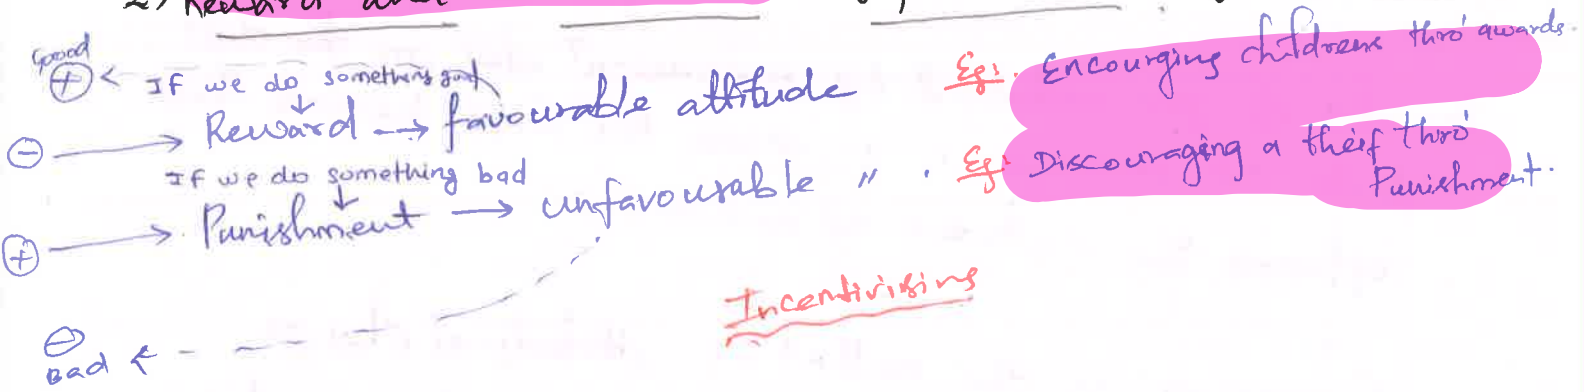 2) Reward and
Good
⊕ ← If we do something good
⊖ → Reward → favourable attitude Eg:. Encourging childrens thro' awards.
If we do something bad
⊕ → Punishment → unfavourable " . Eg: Discouraging a theif thro'
Punishment.
Incentivising
⊖
Bad ←